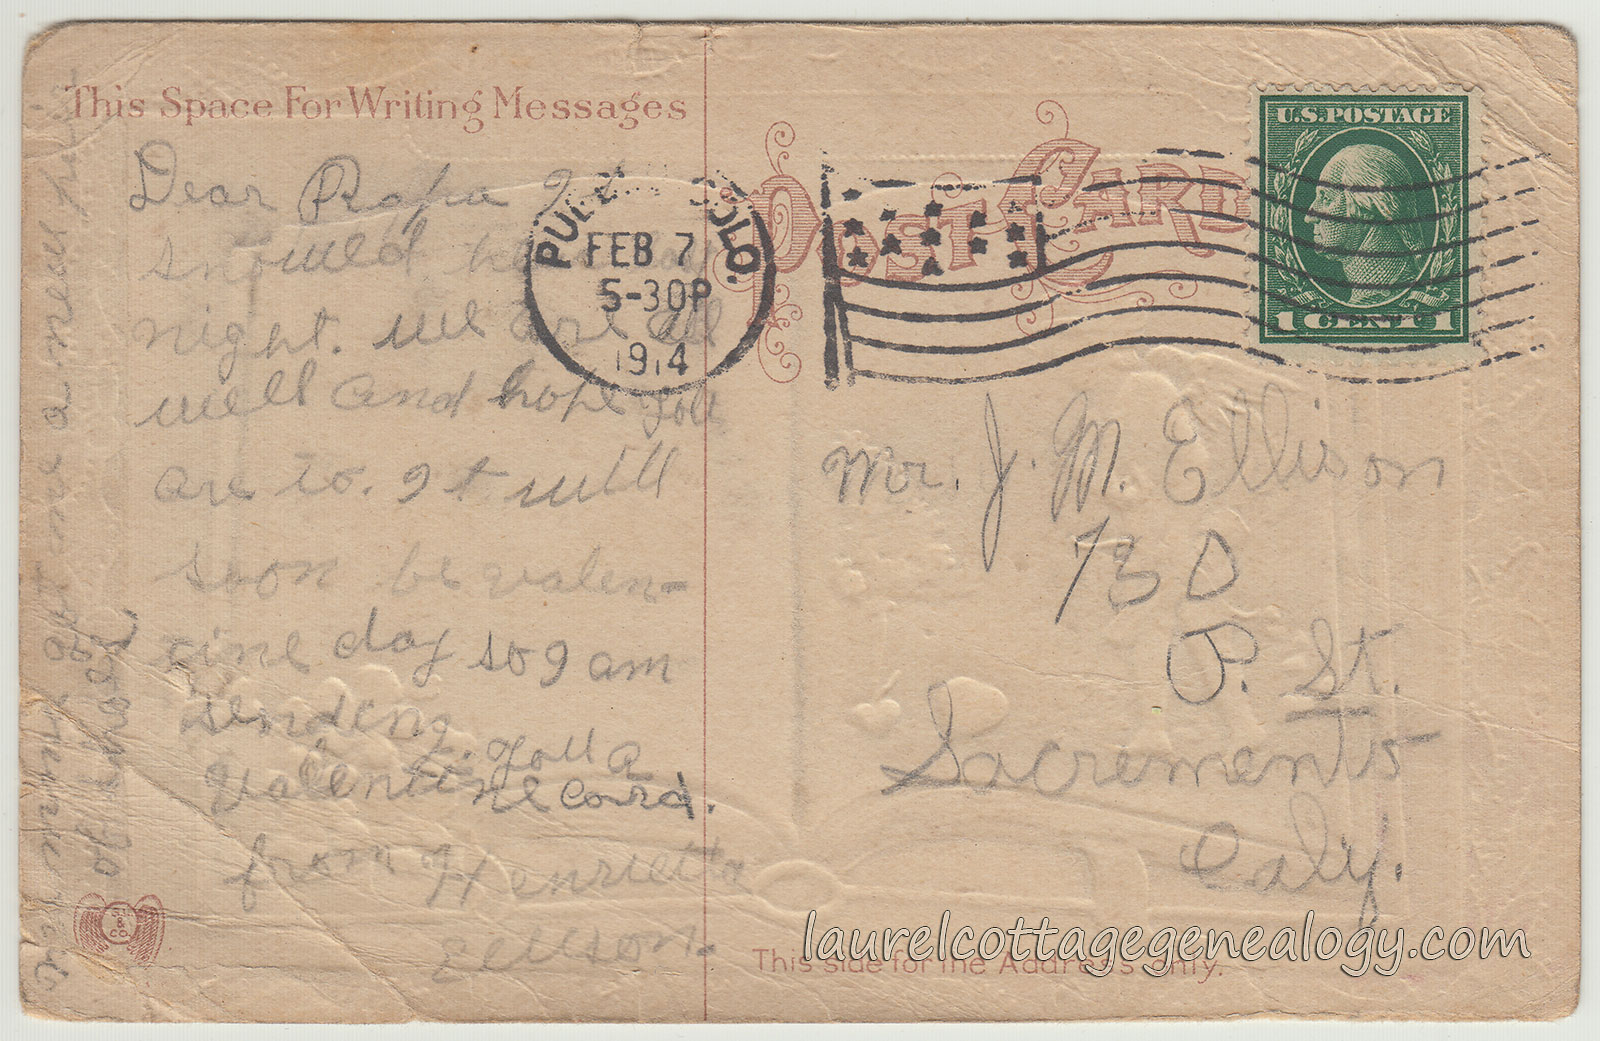 This Space For Writing Messages
Dear Papa It
snowed
night. we are all
well and hope you
are to. It will
soon be valen-
tine day so I am
sending you a
valentine card.
from Henrietta
Ellison.
POST CARD
COLO.
FEB 7
5-30P
1914
U.S. POSTAGE
1 CENT 1
Mr. J. M. Ellison
730
P. St.
Sacremento
Caly.
This side for the Address only.
S.B.
&
CO.
got me a new
to school
laurelcottagegenealogy.com